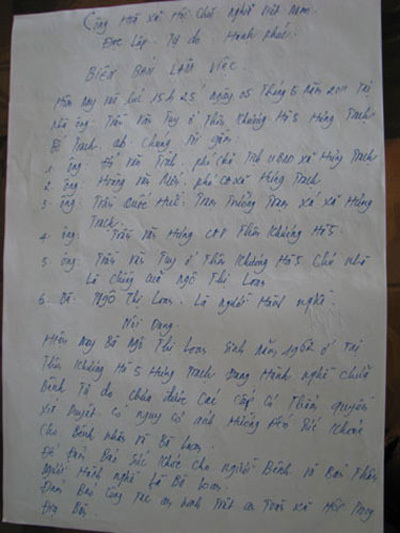 Cộng Hoà Xã Hội Chủ Nghĩa Việt Nam.
Độc Lập. Tự do. Hạnh phúc.
BIÊN BẢN LÀM VIỆC.
Hôm nay vào lúc 15h 25' ngày 05 Tháng 5 Năm 2011 Tại
nhà ông: Trần Văn Tuy ở Thôn Khương Hà 5 Hưng Trạch
Bố Trạch. Chúng tôi gồm.
1. ông: Đỗ Văn phó chủ Tịch UBND xã Hưng Trạch
2. ông: Hoàng Văn phó CA xã Hưng Trạch
3. ông: Trần Quốc Huế: Trạm Trưởng Trạm xá xã Hưng
Trạch.
4. ông: Trần Văn Hưng Thôn Khương Hà 5.
5. ông: Trần Văn Tuy ở Thôn Khương Hà 5 Chủ nhà
Là Chồng của Ngô Thị Loan
6. Bà: NGÔ Thị Loan. Là người Hành nghề.
Nội Dung.
Hiện Nay Bà Ngô Thị Loan Sinh năm ở Tại
Thôn Khương Hà 5 Hưng Trạch Đang Hành nghề chữa
Bệnh Tự do chưa được Các Cấp Có Thẩm quyền
Xét Duyệt. Có nguy cơ ảnh Hưởng Đến Sức Khoẻ
Cho Bệnh nhân và Bà Loan.
Để Đảm Bảo Sức Khỏe Cho người Bệnh và Bản Thân
Người Hành nghề Là Bà Loan.
Đảm Bảo Công Tác an ninh Trật an Toàn Xã Hội Trong
Địa Bàn.